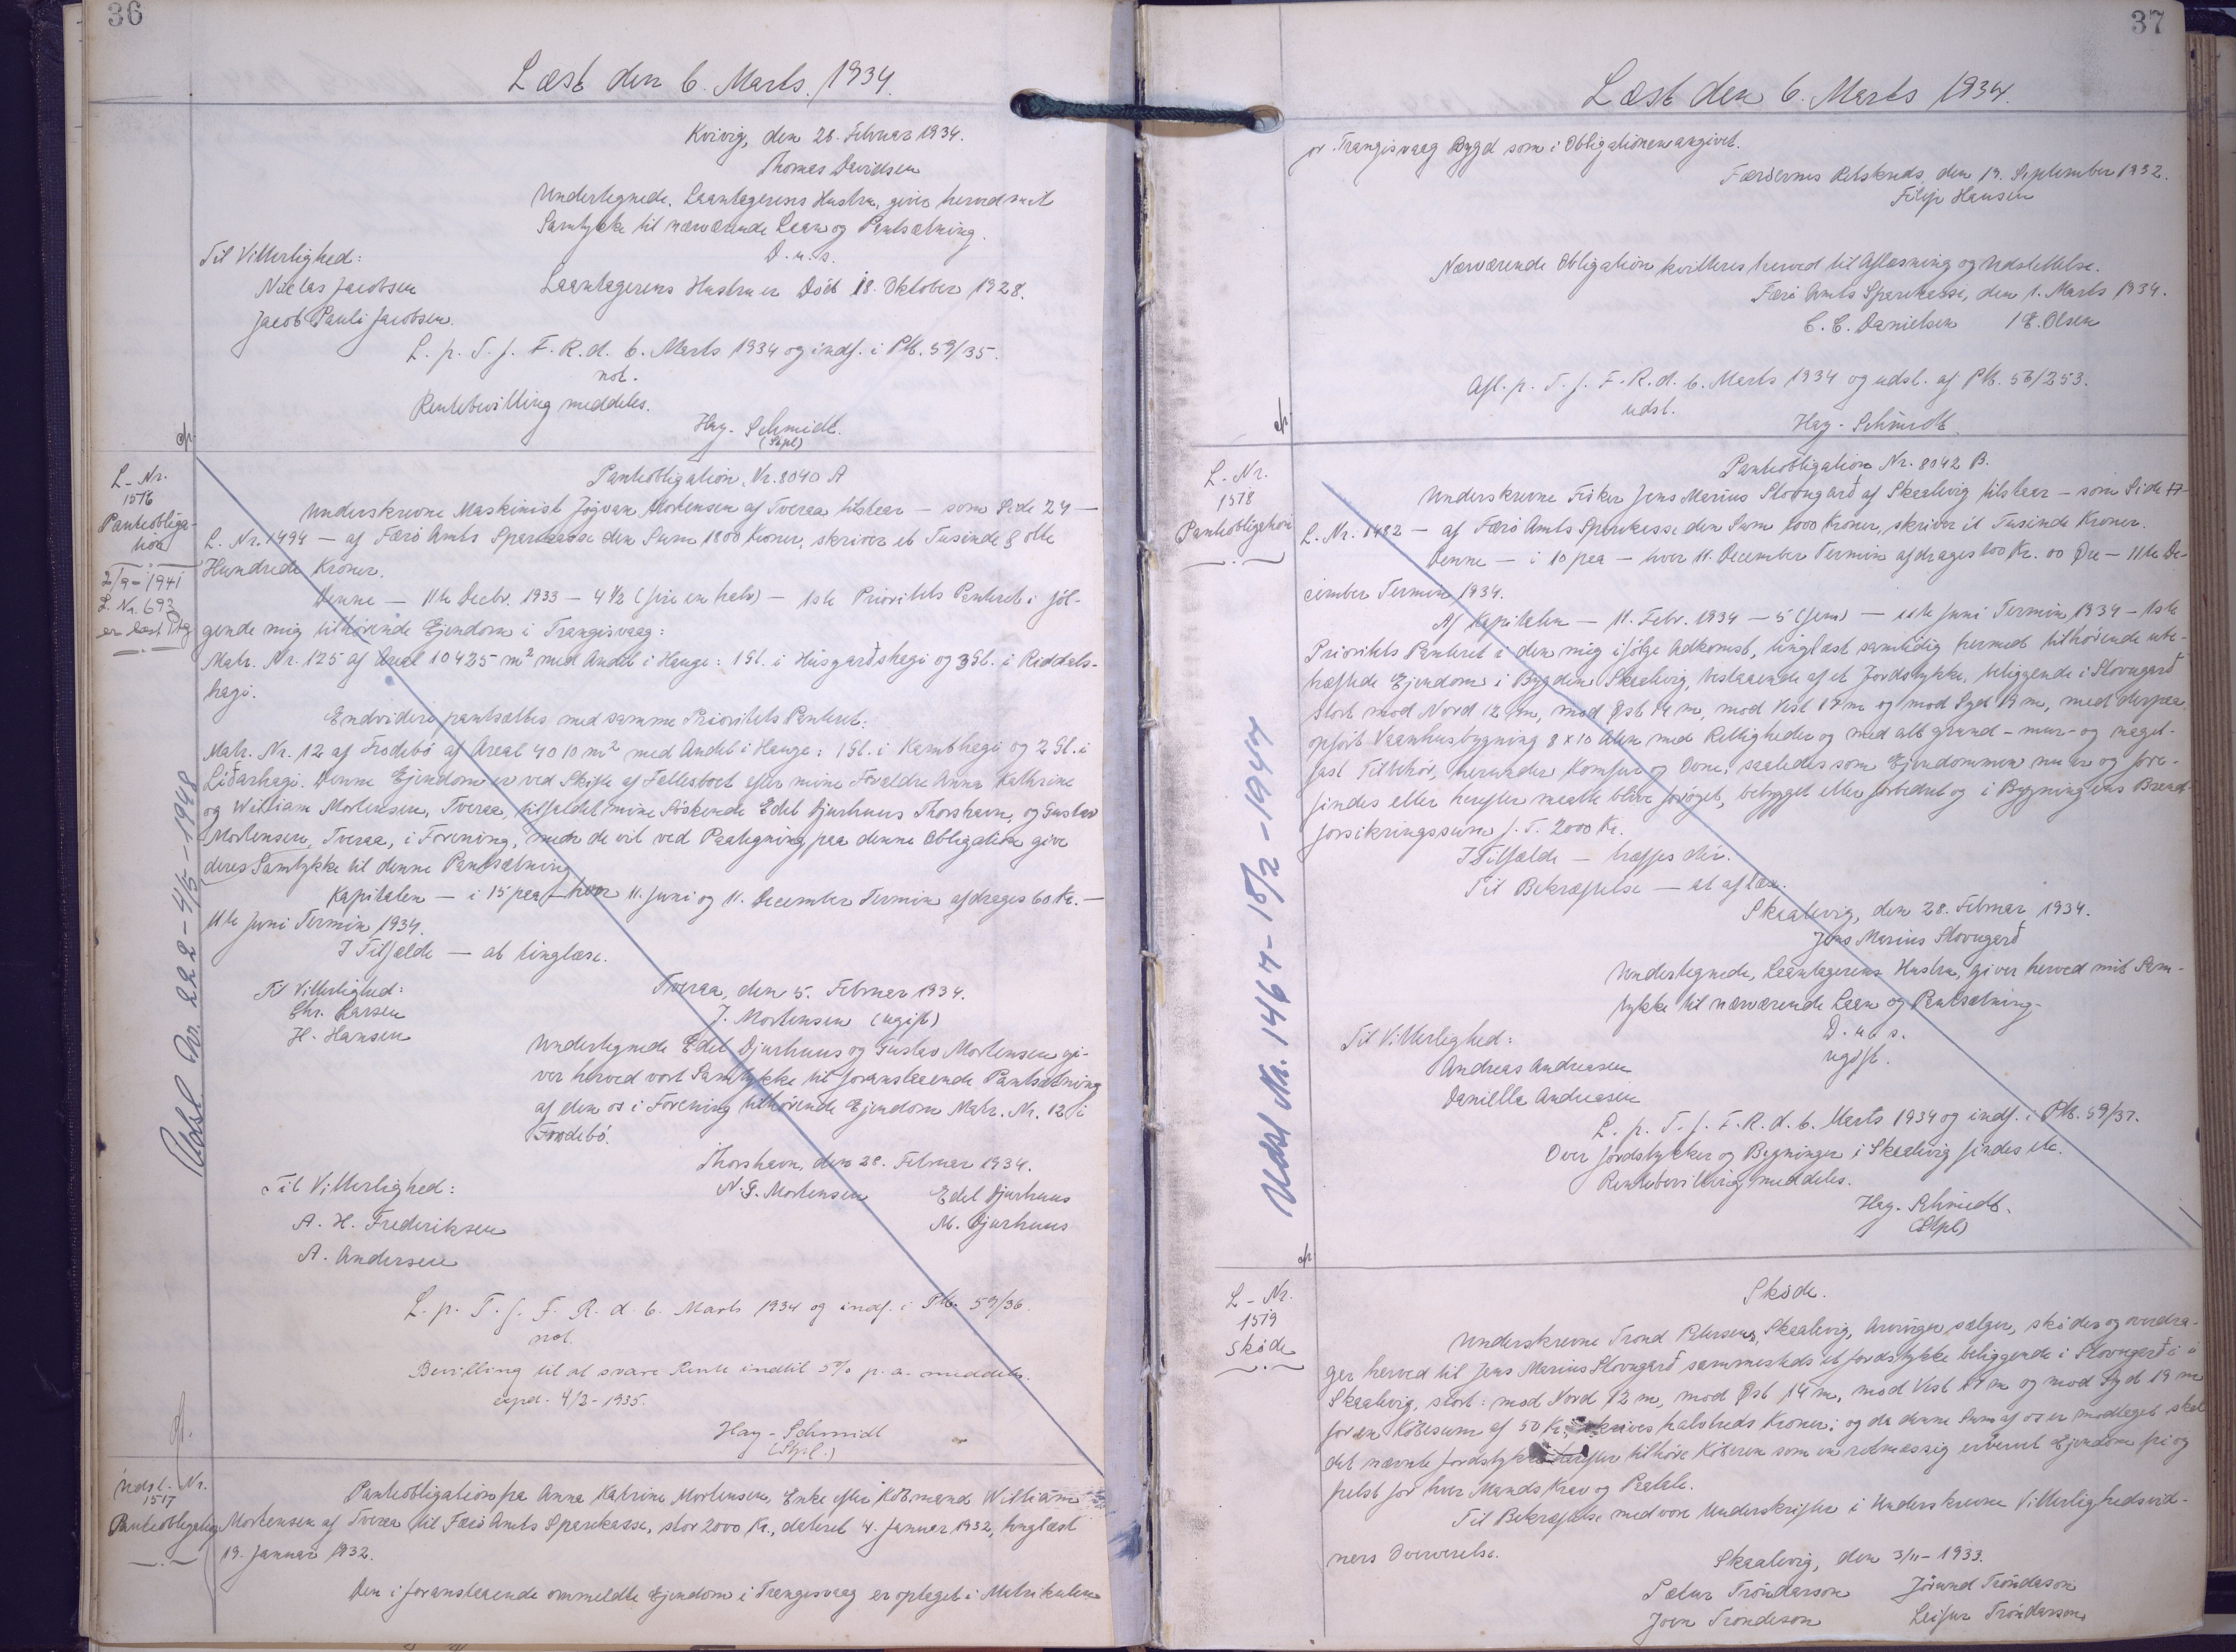 36
Læst den 6. Marts. 1934.
Kvivig, den 28. Februar 1934.
Thomas Davidsen
Undertegnede, Laantagerens Hustru, giver herved mit
Samtykke til nærværende Laan og Pantsætning.
D. u. s.
Til Vitterlighed:
Niclas Jacobsen
Laantagerens Hustru er Död 18. Oktober 1928.
Jacob Pauli Jacobsen.
L. p. T. f. F. R. d. 6. Marts 1934 og indf. i Pb. 59/35.
not.
Rentebevilling meddeles.
Hay-Schmidt.
(Stpl)
L-Nr.
1516
Pantobliga-
tion
2/9-1941
L. Nr. 693
er læst Ptg
Pantobligation, Nr. 8040 A
Underskrevne Maskinist Jógvan Mortensen af Tveraa tilstaar — som Side 24 —
L. Nr. 1494 — af Færö Amts Sparekasse den Sum 1800 Kroner, skriver et Tusinde & otte
Hundrede Kroner.
Denne — 11te Decbr. 1933 — 4 1/2 (fire en halv) — 1ste Prioritets Panteret i föl-
gende mig tilhörende Ejendom i Trangisvaag:
Matr. Nr. 125 af Areal 10425 m² med Andel i Hauge: 1 Gl. i Húsgarðshagi og 3 Gl. i Riddals-
hagi.
Endvidere pantsættes med samme Prioritets Panteret:
Matr. Nr. 12 af Frodebö af Areal 4010 m² med Andel i Hauge: 1 Gl. i Kambhagi og 2 Gl. i
Líðarhagi. Denne Ejendom er ved Skifte af Fællesboet efter mine Forældre Anna Kathrine
og William Mortensen, Tveraa, tilfaldet mine Söskende Edel Djurhuus Thorshavn, og Gustav
Mortensen, Tveraa, i Forening, men de vil ved Paategning paa denne Obligation give
deres Samtykke til denne Pantsætning
Kapitalen — i 15 paa — hver 11. Juni og 11. December Termin afdrages 60 Kr. —
11te Juni Termin 1934.
I Tilfælde — at tinglæse.
Til Vitterlighed:
Chr. Larsen
H. Hansen
Tveraa, den 5. Februar 1934.
J. Mortensen (ugift)
Undertegnede Edel Djurhuus og Gustav Mortensen gi-
ver herved vort Samtykke til foranstaaende Pantsætning
af den os i Forening tilhörende Ejendom Matr. Nr. 12 i
Frodebö.
Thorshavn, den 28. Februar 1934.
Til Vitterlighed:
N. G. Mortensen
Edel Djurhuus
A. H. Frederiksen
M. Djurhuus
A. Andersen
L. p. T. f. F. R. d. 6. Marts 1934 og indf. i Pb. 59/36.
not.
Bevilling til at svare Rente indtil 5% p. a. meddeles.
exped. 4/2-1935.
Hay-Schmidt
(Stpl.)
Udsl Nr. 222 - 4/5 - 1948
Udsl. Nr.
1517
Pantobligation
Pantobligation fra Anna Katrine Mortensen, Enke efter Köbmand William
Mortensen af Tveraa til Færö Amts Sparekasse, stor 2000 Kr., dateret 4. Januar 1932, tinglæst
19. Januar 1932.
Den i foranstaaende ommeldte Ejendom i Trangisvaag er optaget i Matrikulen
37
Læst den 6. Marts 1934.
for Trangisvaag Bygd som i Obligationen angivet.
Færöernes Retskreds, den 19. September 1932.
Filip Hansen
Nærværende Obligation kvitteres herved til Aflæsning og Udslettelse.
Færö Amts Sparekasse, den 1. Marts 1934.
C. C. Danielsen / E. Olsen
Afl. p. T. f. F. R. d. 6. Marts 1934 og udsl. af Pb. 56/253.
udsl.
Hay-Schmidt
L-Nr.
1518
Pantobligation
Pantobligation Nr. 8042 B.
Underskrevne Fisker Jens Marius Stovugarð af Skaalevig tilstaar — som Side 17-
L. Nr. 1482 — af Færö Amts Sparekasse den Sum 1000 Kroner, skriver et Tusinde Kroner.
Denne — i 10 paa — hver 11. December Termin afdrages 100 Kr. 00 Öre — 11te De-
cember Termin 1934.
Af Kapitalen — 11. Febr. 1934 — 5 (fem) — 11te Juni Termin 1934 — 1ste
Prioritets Panteret i den mig ifölge Adkomst, tinglæst samtidig hermed tilhörende ube-
hæftede Ejendom i Bygden Skaalevig, bestaaende af et Jordstykke, beliggende i Stovugarð
stort mod Nord 12 m, mod Öst 14 m, mod Vest 17 m og mod Syd 19 m, med derpaa
opfört Vaanhusbygning 8 x 10 Alen med Rettigheder og med alt grund- mur- og nagel-
fast Tilbehör, herunder Komfur og Ovne, saaledes som Ejendommen nu er og fore-
findes eller herefter maatte blive foröget, bebygget eller forbedret og i Bygningens Brand-
forsikringssum f. T. 2000 Kr.
I Tilfælde — træffes dér.
Til Bekræftelse — at aflæse.
Skaalevig, den 28. Februar 1934.
Jens Marius Stovugarð
Undertegnede, Laantagerens Hustru, giver herved mit Sam-
tykke til nærværende Laan og Pantsætning.
D. u. s.
ugift.
Til Vitterlighed:
Andreas Andreasen
Daniella Andreasen
L. p. T. f. F. R. d. 6. Marts 1934 og indf. i Pb. 59/37.
Over Jordstykker og Bygninger i Skaalevig findes etc.
Rentebevilling meddeles.
Hay-Schmidt.
(Stpl)
Udsl Nr. 1467 - 15/2 - 1944
L-Nr.
1519
Sköde
Sköde.
Underskrevne Trond Petersens, Skaalevig, Arvinger sælger, sköder og overdra-
ger herved til Jens Marius Stovugarð sammesteds et Jordstykke beliggende i Stovugarð i
Skaalevig, stort: mod Nord 12 m, mod Öst 14 m, mod Vest 17 m og mod Syd 19 m
for en Köbesum af 50 Kr. skriver halvtreds Kroner; og da denne Sum af os er modtaget skal
det nævnte Jordstykke herefter tilhöre Köberen som en retmæssig erhvervet Ejendom fri og
frelst for hver Mands Krav og Paatale.
Til Bekræftelse med vore Underskrifter i Underskrevne Vitterlighedsvid-
ners Overværelse.
Skaalevig, den 3/11-1933.
Petur Tróndarson
Jórund Tróndason
Joen Trondeson
Leifur Tróndarson